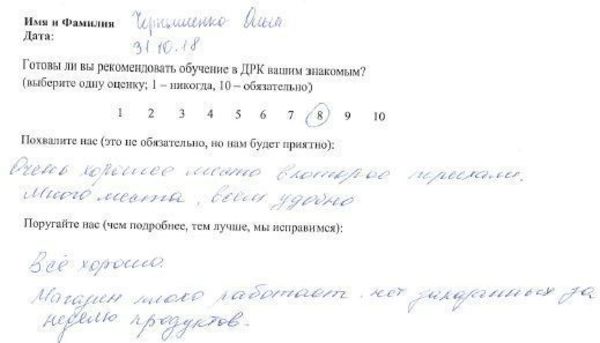 Имя и Фамилия Чернышенко Ольга
Дата: 31.10.18
Готовы ли вы рекомендовать обучение в ДРК вашим знакомым?
(выберите одну оценку; 1 – никогда, 10 – обязательно)
1 2 3 4 5 6 7 8 9 10
Похвалите нас (это не обязательно, но нам будет приятно):
Очень хорошее место в которое приехали.
Много места, всем удобно
Поругайте нас (чем подробнее, тем лучше, мы исправимся):
Всё хорошо.
Магазин плохо работает. нет заказанных за
неделю продуктов.